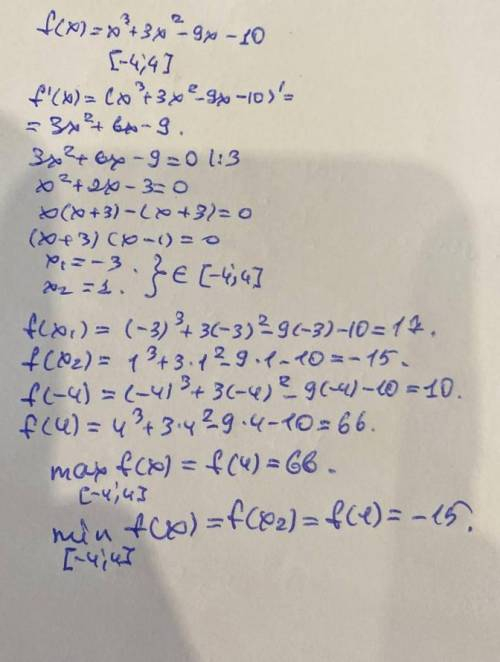 f(x) = x³ + 3x² - 9x - 10
[-4; 4]
f'(x) = (x³ + 3x² - 9x - 10)' =
= 3x² + 6x - 9.
3x² + 6x - 9 = 0 |:3
x² + 2x - 3 = 0
x(x+3) - (x+3) = 0
(x+3)(x-1) = 0
x₁ = -3.
x₂ = 1. } ∈ [-4; 4]
f(x₁) = (-3)³ + 3(-3)² - 9(-3) - 10 = 17.
f(x₂) = 1³ + 3·1² - 9·1 - 10 = -15.
f(-4) = (-4)³ + 3(-4)² - 9(-4) - 10 = 10.
f(4) = 4³ + 3·4² - 9·4 - 10 = 66.
max f(x) = f(4) = 66.
[-4; 4]
min f(x) = f(x₂) = f(1) = -15.
[-4; 4]